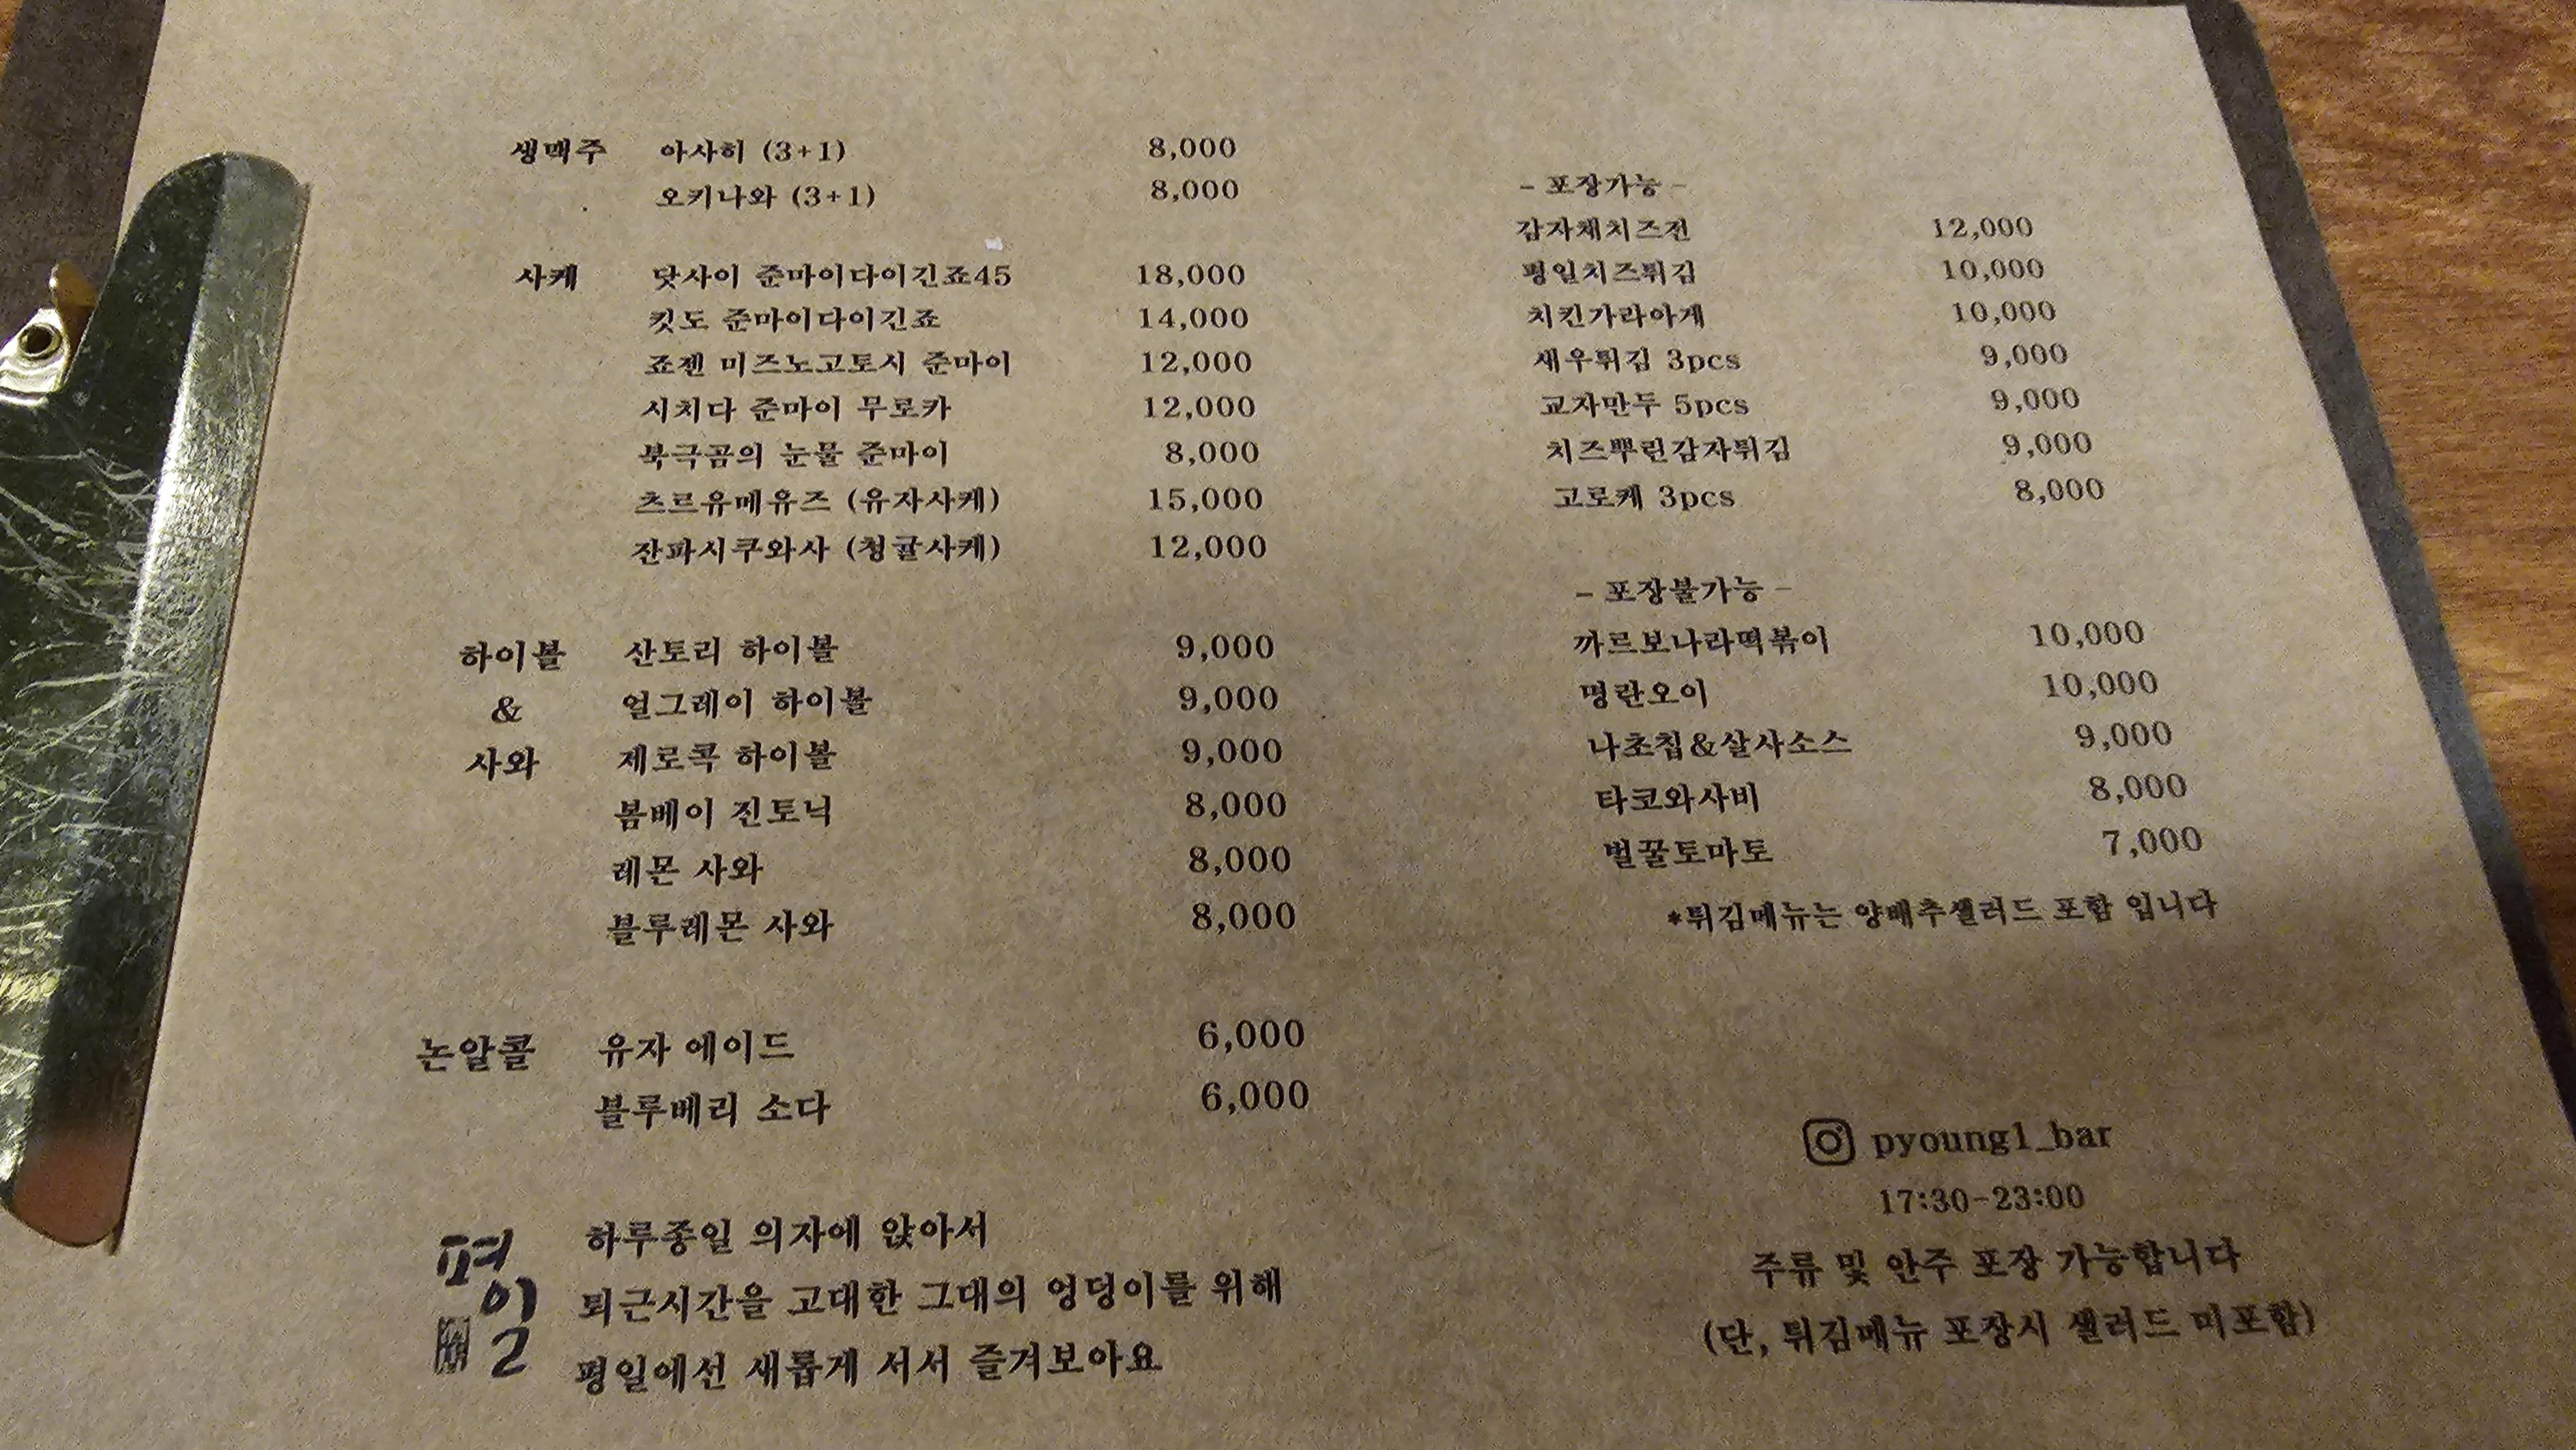 생맥주 아사히 (3+1) 8,000
오키나와 (3+1) 8,000
사케 닷사이 준마이다이긴죠45 18,000
킷도 준마이다이긴죠 14,000
죠젠 미즈노고토시 준마이 12,000
시치다 준마이 무로카 12,000
북극곰의 눈물 준마이 8,000
츠르유메유즈 (유자사케) 15,000
잔파시쿠와사 (청귤사케) 12,000
하이볼 산토리 하이볼 9,000
& 얼그레이 하이볼 9,000
사와 제로콕 하이볼 9,000
봄베이 진토닉 8,000
레몬 사와 8,000
블루레몬 사와 8,000
논알콜 유자 에이드 6,000
블루베리 소다 6,000
평일
하루종일 의자에 앉아서
퇴근시간을 고대한 그대의 엉덩이를 위해
평일에선 새롭게 서서 즐겨보아요
- 포장가능 -
감자채치즈전 12,000
평일치즈튀김 10,000
치킨가라아게 10,000
새우튀김 3pcs 9,000
교자만두 5pcs 9,000
치즈뿌린감자튀김 9,000
고로케 3pcs 8,000
- 포장불가능 -
까르보나라떡볶이 10,000
명란오이 10,000
나초칩&살사소스 9,000
타코와사비 8,000
벌꿀토마토 7,000
*튀김메뉴는 양배추샐러드 포함 입니다
pyoung1_bar
17:30-23:00
주류 및 안주 포장 가능합니다
(단, 튀김메뉴 포장시 샐러드 미포함)